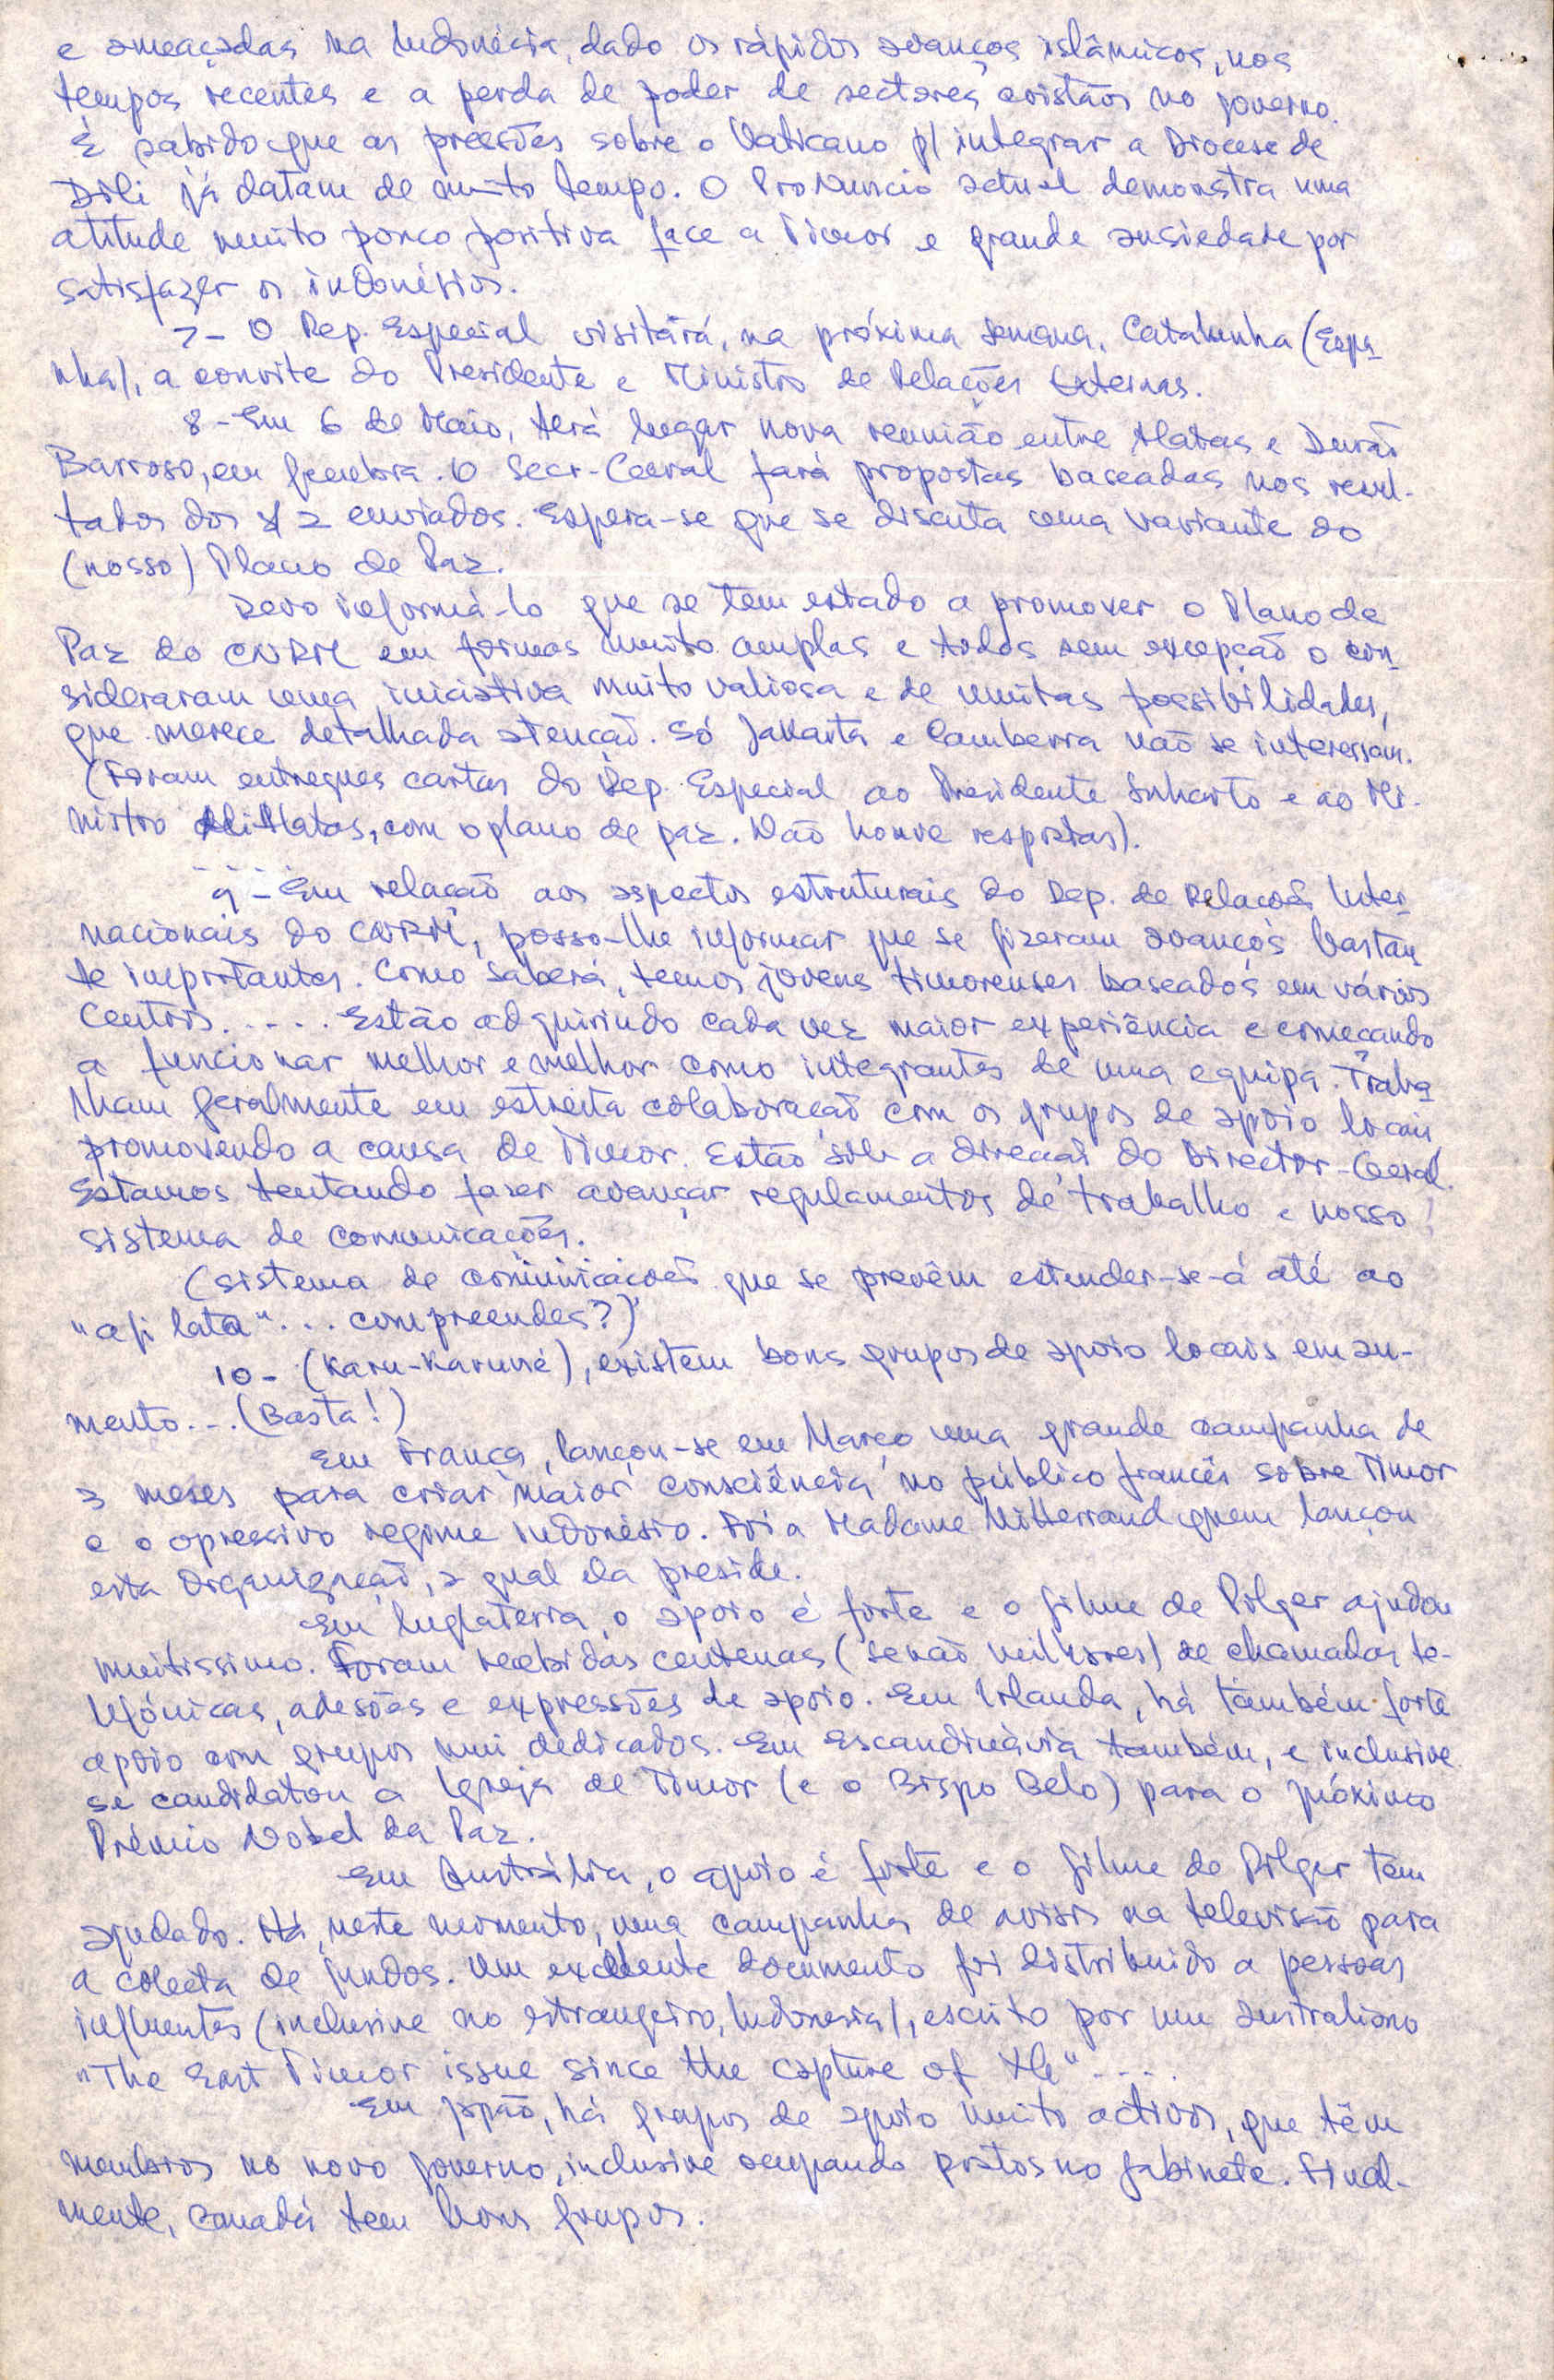 e ameaçadas na Indonésia, dado os rápidos avanços islâmicos, nos
tempos recentes e a perda de poder de sectores cristãos no governo.
É sabido que as pressões sobre o Vaticano p/ integrar a Diocese de
Díli já datam de muito tempo. O Pro Nuncio actual demonstra uma
atitude muito pouco positiva face a Timor e grande ansiedade por
satisfazer os indonésios.
7- O Rep. Especial visitará, na próxima semana, Catalunha (Espa
nha), a convite do Presidente e Ministro de Relações Externas.
8- Em 6 de Maio, terá lugar nova reunião entre Alatas e Durão
Barroso, em Genebra. O Secr-Geral fará propostas baseadas nos resul-
tados dos 2 enviados. Espera-se que se discuta uma variante do
(nosso) Plano de Paz.
Devo informá-lo que se tem estado a promover o Plano de
Paz do CNRM em formas muito amplas e todos sem excepção o con
sideraram uma iniciativa muito valiosa e de muitas possibilidades,
que merece detalhada atenção. Só Jakarta e Camberra não se interessam.
(Foram entregues cartas do Rep. Especial ao Presidente Suharto e ao Mi-
nistro Ali Alatas, com o plano de paz. Não houve respostas).
9- Em relação aos aspectos estruturais do Dep. de Relações Inter
nacionais do CNRM, posso-lhe informar que se fizeram avanços bastan
te importantes. Como saberá, temos jovens timorenses baseados em vários
Centros..... Estão adquirindo cada vez maior experiência e começando
a funcionar melhor e melhor como integrantes de uma equipa. Traba
lham geralmente em estreita colaboração com os grupos de apoio locais
promovendo a causa de Timor. Estão sob a direcção do Director-Geral.
Estamos tentando fazer avançar regulamentos de trabalho e nosso
sistema de comunicações.
(sistema de comunicações que se prevêm estender-se-á até ao
"afi lata"... compreendes?)
10- (Karu-Karuné), existem bons grupos de apoio locais em au-
mento... (Basta!)
Em França, lançou-se em Março uma grande campanha de
3 meses para criar maior consciência no público francês sobre Timor
e o opressivo regime indonésio. Foi a Madame Mitterrand quem lançou
esta Organização, a qual ela preside.
Em Inglaterra, o apoio é forte e o filme de Pilger ajudou
muitissimo. Foram recebidas centenas (senão milhares) de chamadas te-
lefónicas, adesões e expressões de apoio. Em Irlanda, há também forte
apoio com grupos mui dedicados. Em Escandinávia também, e inclusive
se candidatou a Igreja de Timor (e o Bispo Belo) para o próximo
Prémio Nobel da Paz.
Em Austrália, o apoio é forte e o filme do Pilger tem
ajudado. Há, neste momento, uma campanha de avisos na televisão para
a colecta de fundos. Um excelente documento foi distribuido a pessoas
influentes (inclusive no estrangeiro, Indonesia), escrito por um australiano
"The East Timor issue since the capture of XG"....
Em Japão, há grupos de apoio muito activos, que têm
membros no novo governo, inclusive ocupando postos no gabinete. Final-
mente, Canadá tem bons grupos.